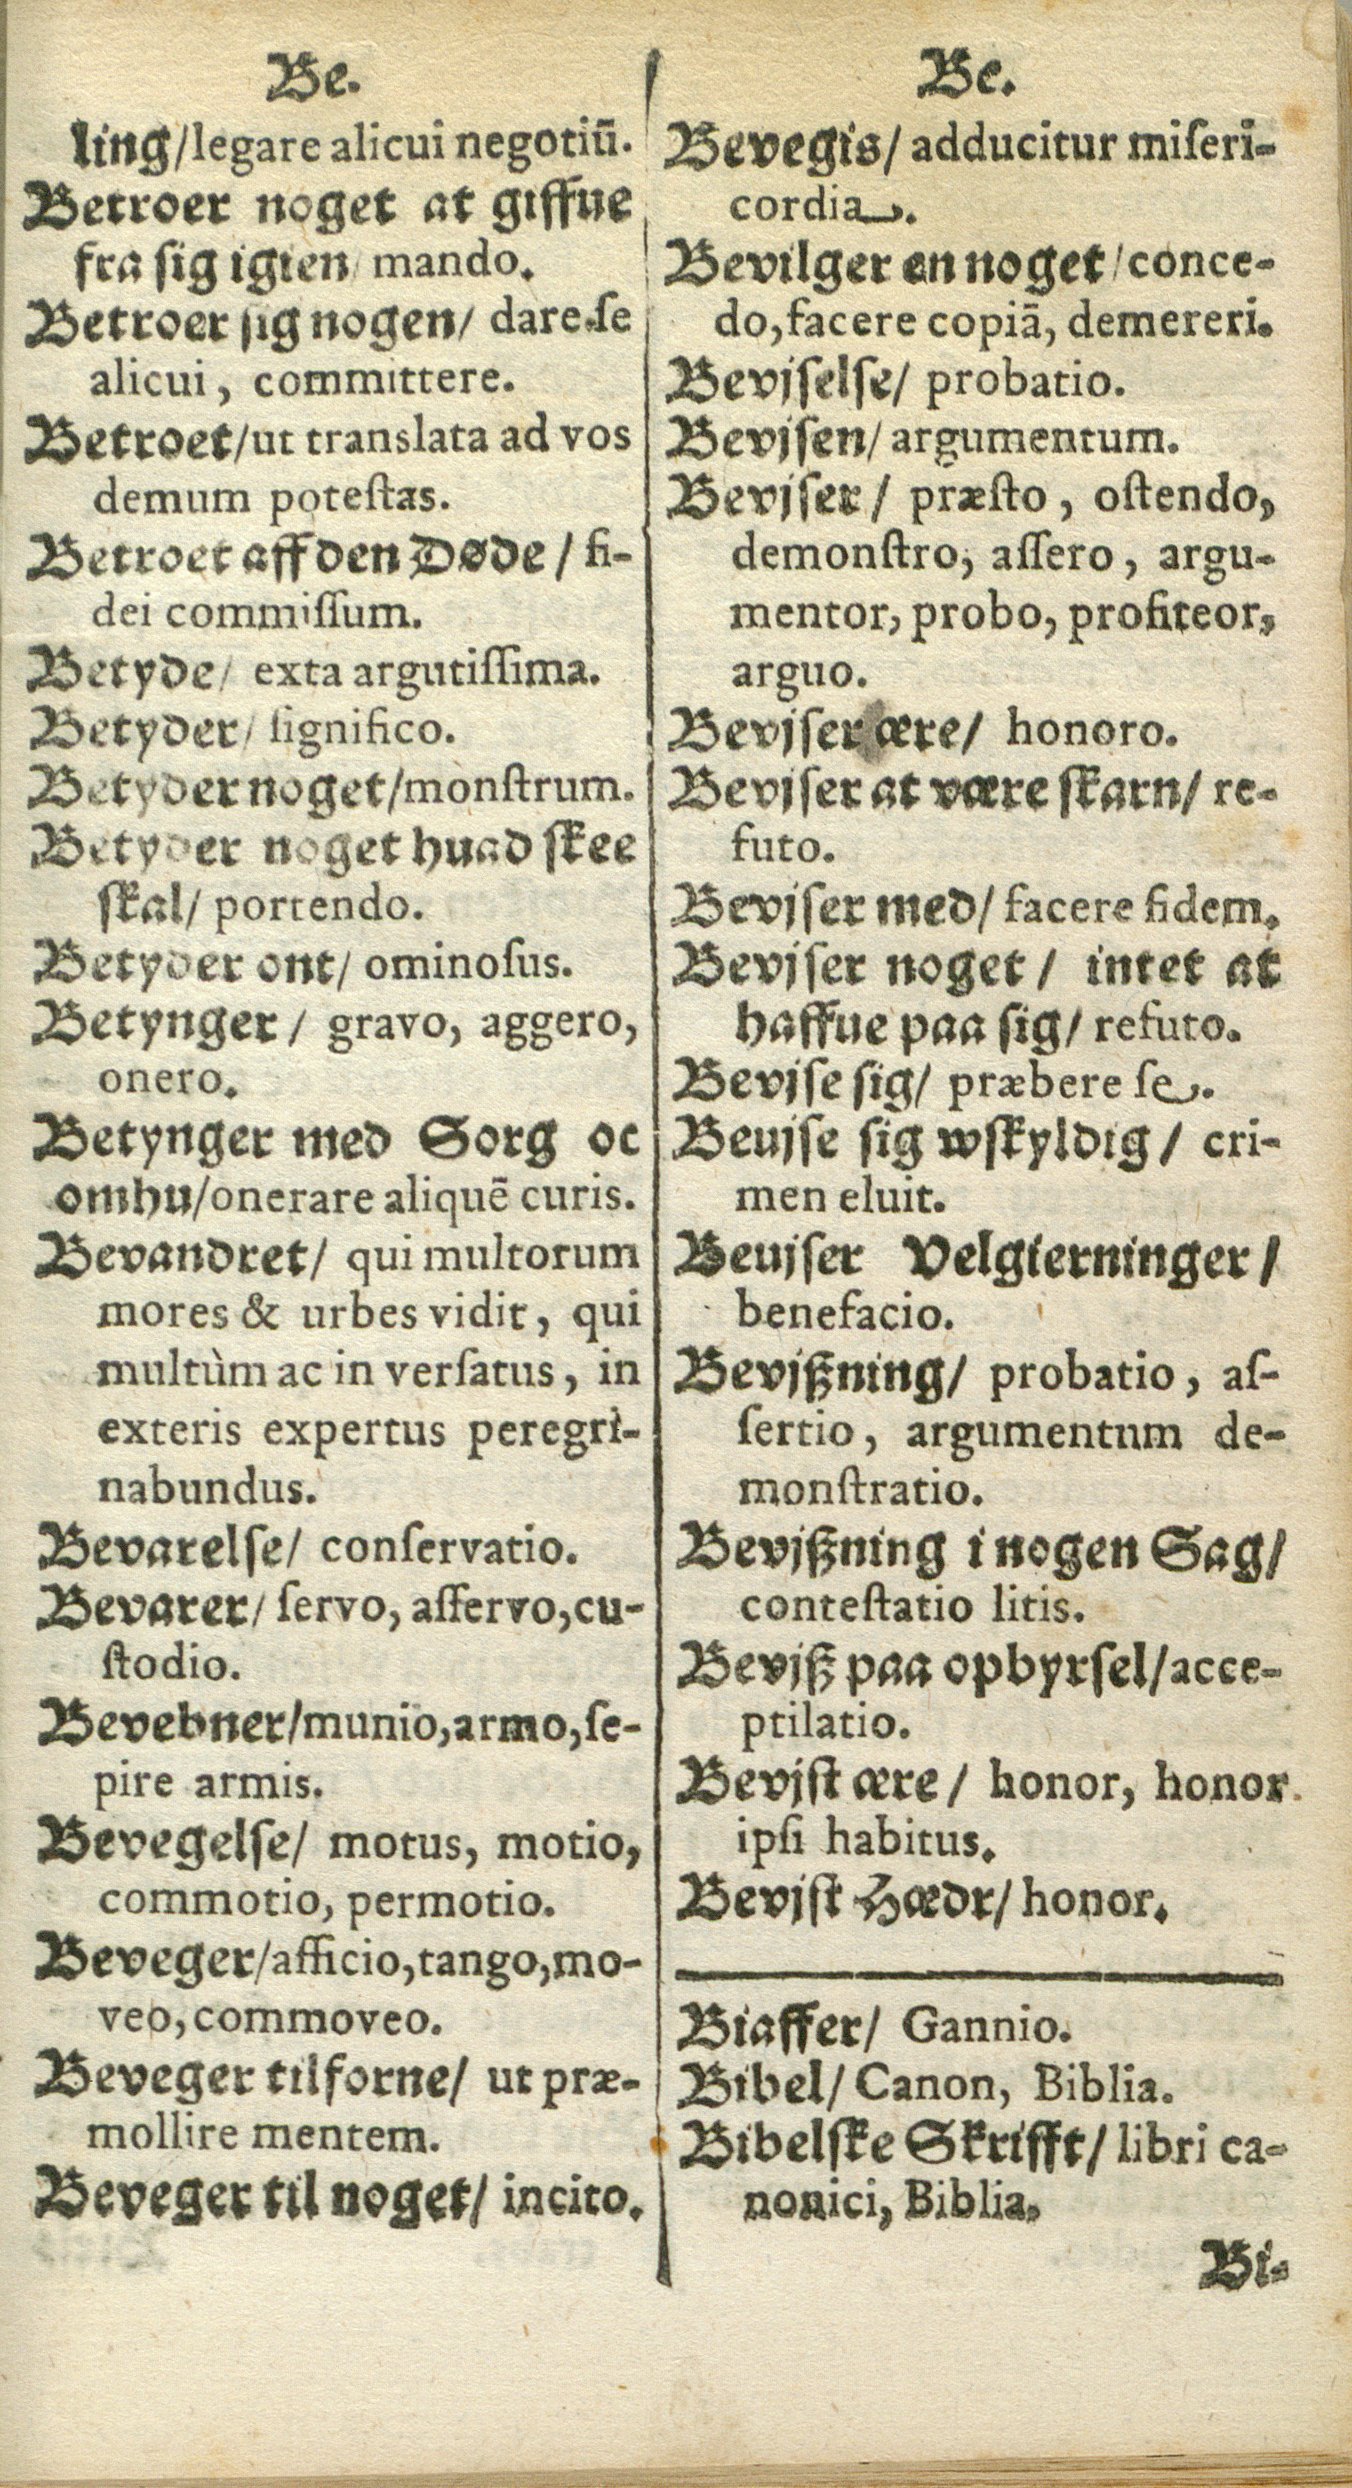 Be.
ling/legare alicui negotiū.
Betroer noget at giffue
fra sig igien/ mando.
Betroer sig nogen/ dare ſe
alicui, committere.
Betroet/ut translata ad vos
demum poteſtas.
Betroet aff den Døde/ fi-
dei commiſſum.
Betyde/ exta argutiſſima.
Betyder/ ſignifico.
Betyder noget/monſtrum.
Betyder noget huad ſkee
ſkal/ portendo.
Betyder ont/ ominoſus.
Betynger/ gravo, aggero,
onero.
Betynger med Sorg oc
omhu/onerare aliquē curis.
Bevandret/ qui multorum
mores & urbes vidit, qui
multùm ac in verſatus, in
exteris expertus peregri-
nabundus.
Bevarelſe/ conſervatio.
Bevarer/ ſervo, aſſervo,cu-
ſtodio.
Bevebner/munio,armo,ſe-
pire armis.
Bevegelſe/ motus, motio,
commotio, permotio.
Beveger/afficio,tango,mo-
veo,commoveo.
Beveger tilforne/ ut præ-
mollire mentem.
Beveger til noget/ incito.
Be.
Bevegis/ adducitur miſeri-
cordia.
Bevilger en noget/conce-
do,facere copiā, demereri.
Bevjſelſe/ probatio.
Bevjſen/ argumentum.
Bevjſer/ præſto, oſtendo,
demonſtro, aſſero, argu-
mentor, probo, profiteor,
arguo.
Bevjſer ære/ honoro.
Bevjſer at være ſkarn/ re-
futo.
Bevjſer med/ facere fidem.
Bevjſer noget/ intet at
haffue paa ſig/ refuto.
Bevjſe ſig/ præbere ſe.
Beujſe ſig wſkyldig/ cri-
men eluit.
Beujſer Velgierninger/
benefacio.
Bevjßning/ probatio, aſ-
ſertio, argumentum de-
monſtratio.
Bevjßning i nogen Sag/
conteſtatio litis.
Bevjß paa opbyrſel/acce-
ptilatio.
Bevjſt ære/ honor, honor
ipſi habitus.
Bevjſt Hædr/ honor.
Biaffer/ Gannio.
Bibel/ Canon, Biblia.
Bibelſke Skrifft/ libri ca-
nonici, Biblia.
Bi-